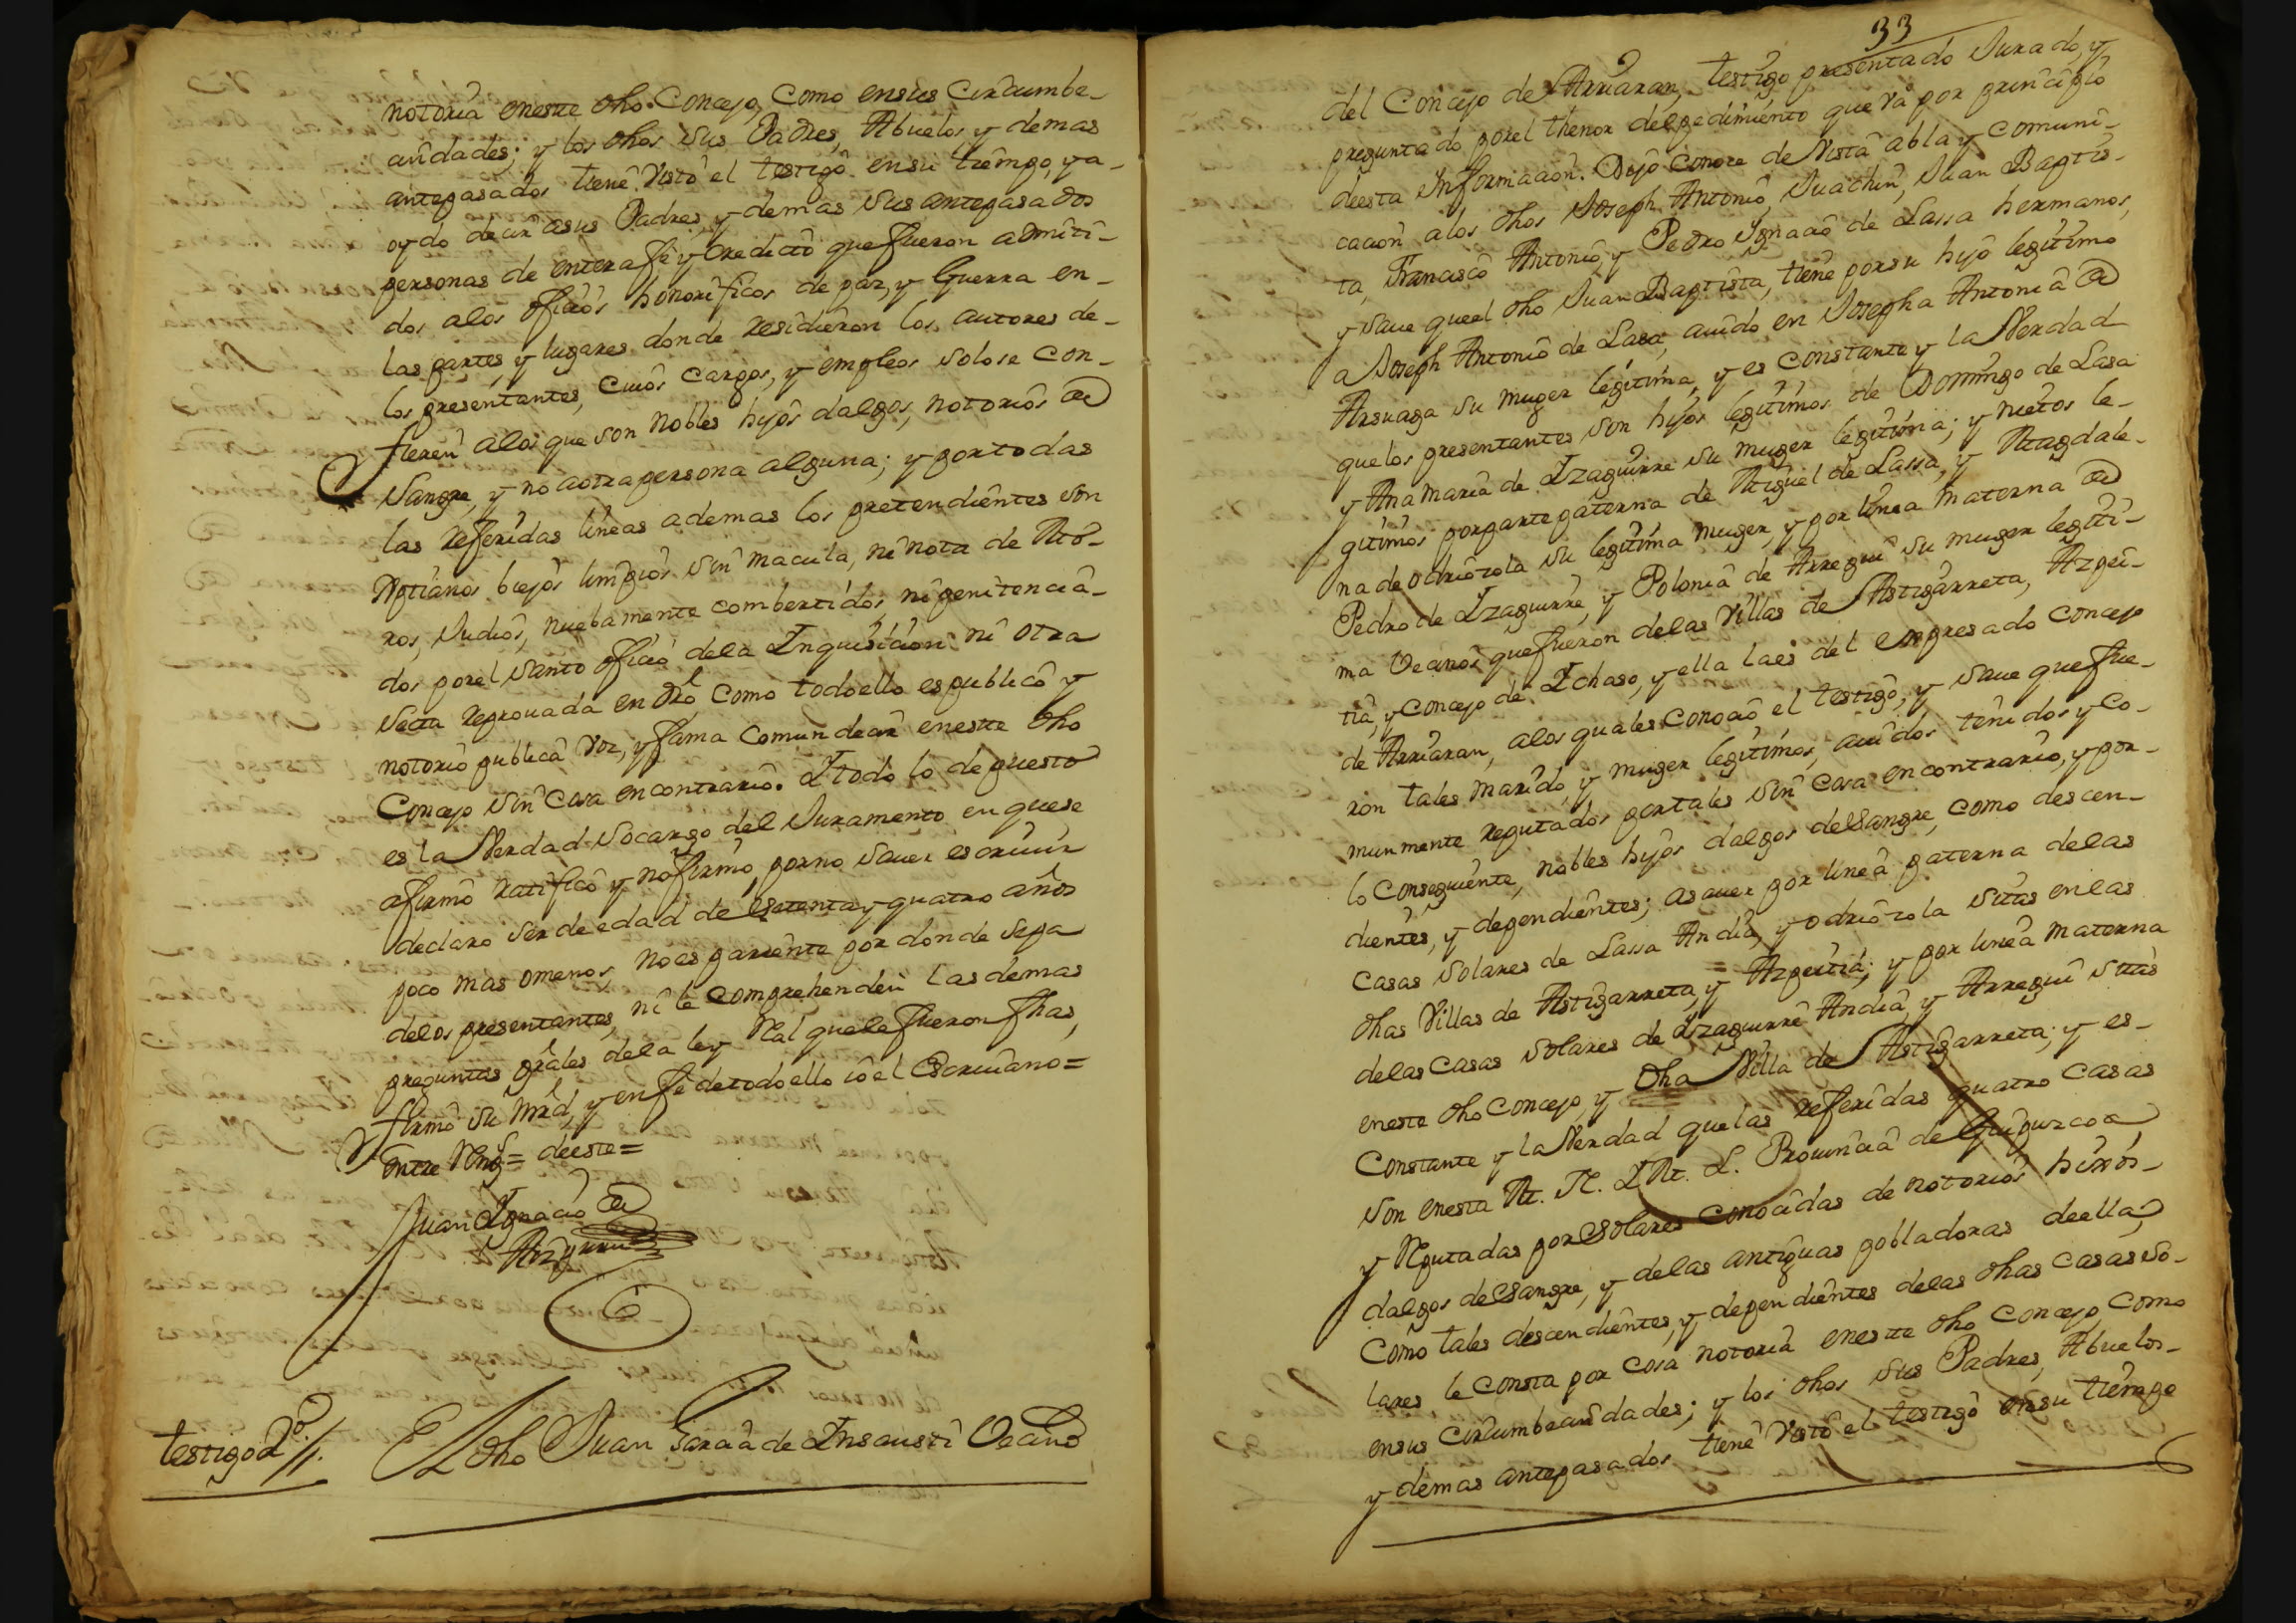 notoria eneste dho Concejo, Como ensus Circumbe-
andades; y los dhos sus Padres, Abuelos, y demas
antepasados tiene visto el testigo ensu tiempo, y a-
oydo decir asus Padres, y demas sus antepasados
personas de entera fe y credicto que fueron admiti-
dos alos oficios honorificos de paz, y Guerra en-
las partes, y lugares donde residieron los autores de-
los presentantes, cuios cargos, y empleos solose Con-
fieren alos que son Nobles hijos dalgo, notorios de
Sangre, y no aotra persona alguna; y por todas
las referidas lineas ademas los pretendientes son
Xptianos biejos limpios sin macula, ni nota de Mo-
ros, Judios, nuebamente combertidos, ni penitencia-
dos porel santo oficio dela Inquisicion ni otra
Secta reprouada en dro como todoello espublico y
notorio publica voz, y fama Comun decir eneste dho
Concejo sin Cosa encontrario. I todo lo depuesto
es la Verdad Socargo del Juramento en quese
afirmo ratifico y nofirmo porno sauer escriuir
declaro ser de edad de Setenta y quatro años
poco mas omenos, noes pariente por donde sepa
delos presentantes, ni le comprehenden las demas
preguntas gräles dela ley Real quele fueron fhas,
firmo su Mrd, y enfe detodoello io el Escriuano=
Entre Rengs= deeste=
Juan Ignacio de
testigo 2º //. El dho Juan Garcia de Insausti Vecino
33
del Concejo de Arriaran, testigo presentado Jurado, y
preguntado porel thenor delpedimiento que va por principio
deesta Informacion. Dijo conoce de Vista abla y comuni-
cacion alos dhos Joseph Antonio, Juachin, Juan Baptis-
ta, Francisco Antonio, y Pedro Ignacio de Lassa hermanos,
y saue queel dho Juan Baptista, tiene porsu hijo legitimo
a Joseph Antonio de Lasa, auido en Josepha Antonia de
Arsuaga su muger legitima, y es constante y la Verdad
quelos presentantes son hijos legitimos de Domingo de Lasa
y Ana Maria de Izaguirre su muger legitima; y nietos le-
gitimos porparte paterna de Miguel de Lassa, y Magdale-
na de odriozola su legitima muger, y por linea materna de
Pedro de Izaguirre, y Polonia de Arregui su muger legiti-
ma Vecinos quefueron delas Villas de Astigarreta, Azpei-
tia, y Concejo de Ichaso, y ella laes del Expresado Concejo
de Arriaran, alos quales Conocio el testigo, y saue quefue-
ron tales marido, y muger legitimos, auidos tenidos y Co-
munmente reputados portales sin cosa encontrario, y por-
lo Consequente, nobles hijos dalgos deSangre, como descen-
dientes, y dependientes; asauer por linea paterna delas
Casas Solares de Lassa Andia, y odriozola sitas enlas
dhas Villas de Astigarreta, y = Azpeitia; y por linea Materna
delas Casas Solares de Izaguirre Andia, y Arregui sitas
eneste dho Concejo, y dha Villa de Astigarreta; y es-
Constante y la Verdad quelas referidas quatro Casas
son enesta M. N. I M. L. Prouincia de Guipuzcoa
y Reputadas por Solares conocidas de notorios hijos-
dalgos deSangre, y delas antiguas pobladoras deella,
Como tales descendientes, y dependientes delas dhas Casas So-
lares, le consta por cosa notoria eneste dho Concejo, como
ensus circumbeandades; y los dhos sus Padres, Abuelos-
y demas antepasados tiene visto el testigo ensu tiempo